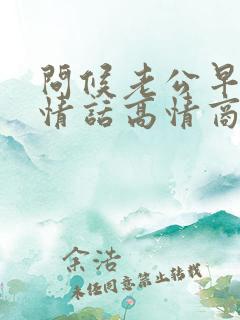 問候老公早
情話高情商
余浩
未经同意禁止转载